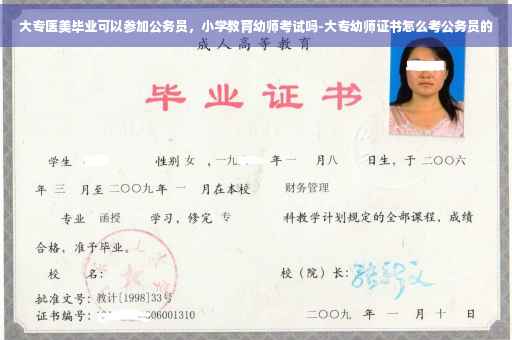 大专医美毕业可以参加公务员，小学教育幼师考试吗-大专幼师证书怎么考公务员的
成人高等教育
毕业证书
学生 性别 女 ，一九 年 一 月八 日生，于 二〇〇六
年 三 月至 二〇〇九 年 一 月在本校 财务管理
专业 函授 学习，修完 专 科教学计划规定的全部课程，成绩
合格，准予毕业。
校 名： 校（院）长：
批准文号：教计[1998]33号
证书编号： 06001310 二〇〇九 年 一 月 十 日